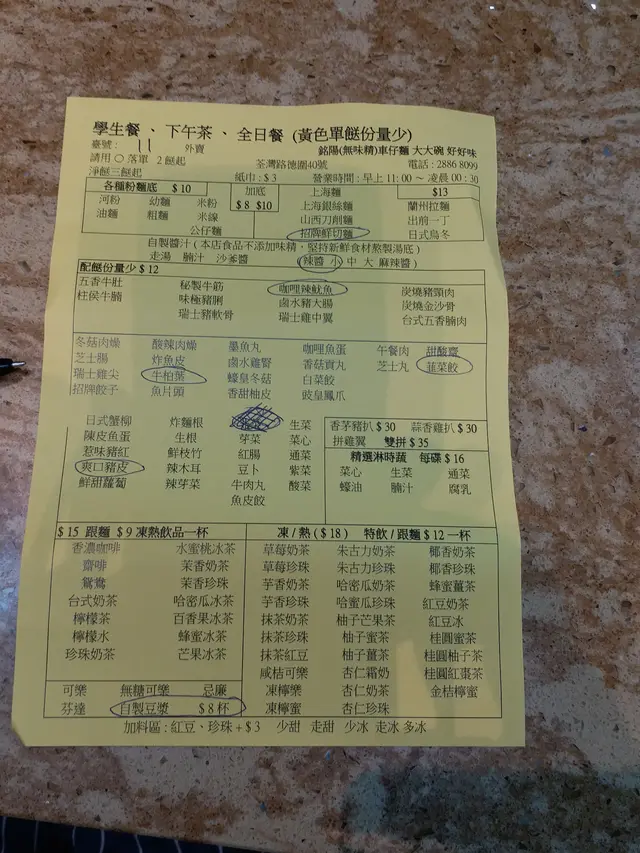 學生餐 、 下午茶 、 全日餐 (黃色單餸份量少)
臺號： 11 外賣 銘陽(無味精)車仔麵 大大碗 好好味
請用 〇 落單 2 餸起 荃灣路德圍40號 電話：2886 8099
淨餸三餸起 紙巾：$ 3 營業時間：早上 11: 00 ~ 凌晨 00 : 30
各種粉麵底 $ 10 加底 上海麵 $13
河粉 幼麵 米粉 $ 8 $10 上海銀絲麵 蘭州拉麵
油麵 粗麵 米線 山西刀削麵 出前一丁
公仔麵 招牌鮮切麵 日式烏冬
自製醬汁 ( 本店食品不添加味精，堅持新鮮食材熬製湯底)
走湯 腩汁 沙爹醬 (辣醬 小 中 大 麻辣醬 )
配餸份量少 $ 12
五香牛肚 秘製牛筋 咖哩辣魷魚 炭燒豬頸肉
柱侯牛腩 味極豬脷 鹵水豬大腸 炭燒金沙骨
瑞士豬軟骨 瑞士雞中翼 台式五香腩肉
冬菇肉燥 酸辣肉燥 墨魚丸 咖哩魚蛋 午餐肉 甜酸齋
芝士腸 炸魚皮 鹵水雞腎 香菇貢丸 芝士丸 韮菜餃
瑞士雞尖 牛柏葉 蠔皇冬菇 白菜餃
招牌餃子 魚片頭 香甜柚皮 豉皇鳳爪
日式蟹柳 炸麵根 生菜 香茅豬扒 $ 30 蒜香雞扒 $ 30
陳皮魚蛋 生根 芽菜 菜心 拼雞翼 雙拼 $ 35
惹味豬紅 鮮枝竹 紅腸 通菜 精選淋時蔬 每碟 $ 16
爽口豬皮 辣木耳 豆卜 紫菜 菜心 生菜 通菜
鮮甜蘿蔔 辣芽菜 牛肉丸 酸菜 蠔油 腩汁 腐乳
魚皮餃
$ 15 跟麵 $ 9 凍熱飲品一杯 凍 / 熱 ( $ 18 ) 特飲 / 跟麵 $ 12 一杯
香濃咖啡 水蜜桃冰茶 草莓奶茶 朱古力奶茶 椰香奶茶
齋啡 茉香奶茶 草莓珍珠 朱古力珍珠 椰香珍珠
鴛鴦 茉香珍珠 芋香奶茶 哈蜜瓜奶茶 蜂蜜薑茶
台式奶茶 哈密瓜冰茶 芋香珍珠 哈蜜瓜珍珠 紅豆奶茶
檸檬茶 百香果冰茶 抹茶奶茶 柚子芒果茶 紅豆冰
檸檬水 蜂蜜冰茶 抹茶珍珠 柚子蜜茶 桂圓蜜茶
珍珠奶茶 芒果冰茶 抹茶紅豆 柚子薑茶 桂圓柚子茶
咸桔可樂 杏仁霜奶 桂圓紅棗茶
可樂 無糖可樂 忌廉 凍檸樂 杏仁奶茶 金桔檸蜜
芬達 自製豆漿 $ 8 杯 凍檸蜜 杏仁珍珠
加料區 : 紅豆、珍珠 + $ 3 少甜 走甜 少冰 走冰 多冰